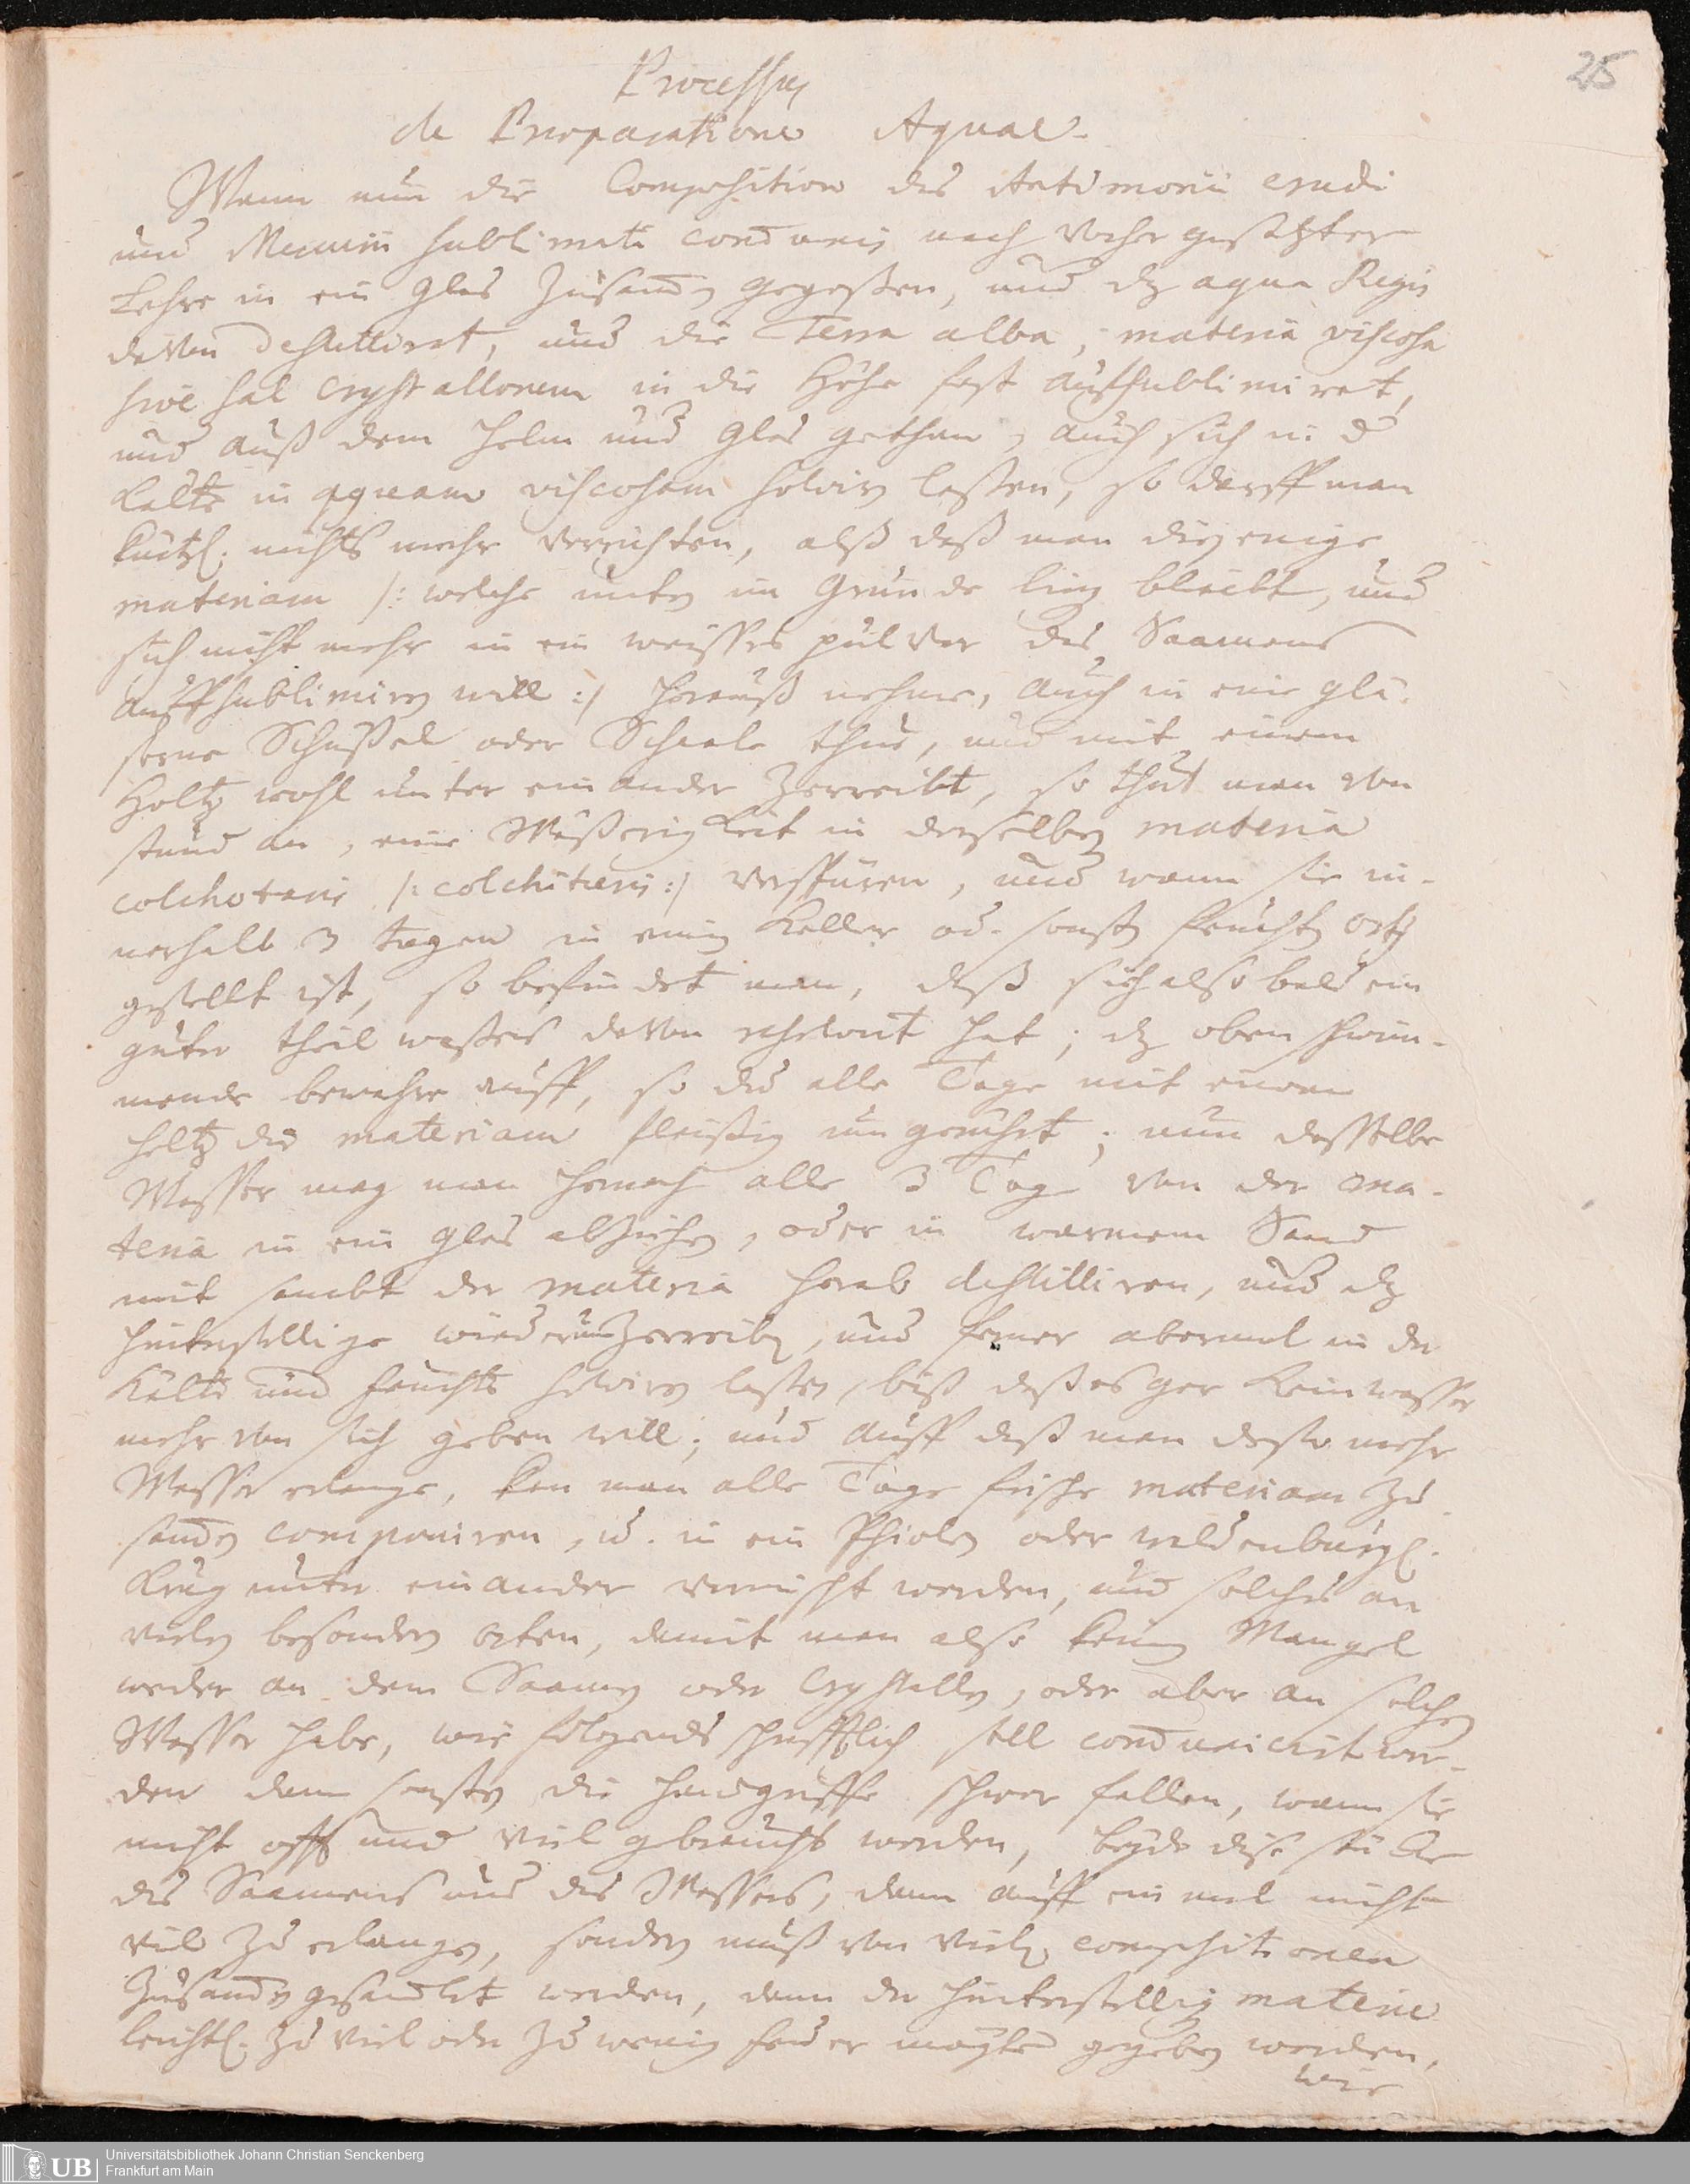 25
Processus
de Præparatione Aquae.
Wann nun die Composition des Antimonii crudi
und Mercurii sublimati condunis nach vorher gesetzter
Lehre in ein Glas zusamen gegoßen, und dz aqua Regis
davon destillirt, und die Terra alba, materia viscosa
sive sal crystallorum in die Höhe fest auffsublimiret,
und auß dem Helm und Glas gethan, auch sich in d
Kälte in aquam viscosam solvirn laßen, so darff man
kürtzl. nichts mehr verrichten, alß daß man diejenige
materiam /: welche unten im Grunde lieg bleibt, und
sich nicht mehr in ein weisses pulver des Saamens
auffsublimirn will :/ herauß nehme, auch in eine glä-
serne Schüßel oder Schaale thue, und mit einem
Holtz wohl unter einander zerreibt, so thut man von
stund an, eine Wäßerigkeit in derselben materia
colchotaris /: colchitaris :/ verspüren, und wann sie in-
nerhalb 3 tagen in einen Keller od. sonst feuchten Orth
gestellt ist, so befindet man, daß sich alsobald ein
guter theil waßers davon resolvirt hat; dz oben schwim-
mende bewahre auff, so du alle Tage mit einem
holtz die materiam fleißig umgerührt; nun dasselbe
Wasser mag man hernach alle 3 Tag von der ma-
teria in ein Glas abziehen, oder in warmem Sand
mit sambt der materia herab destilliren, und dz
hinterstellige wiederum zerreiben, und ferner abermal in der
Kälte und feuchte solvirn laßen, biß daß es gar kein wasser
mehr von sich geben will; und auff daß man desto mehr
Wasser erlange, kan man alle Tage frische materiam zu
samen componiren, u. in ein Phiolen oder waldenburgl.
Krug unter einander vermischt werden, und solches an
vielen besondern Orten, damit man also keinen Mangel
weder an dem Saamen oder Crystallen, oder aber an solchen
Wasser habe, wie folgends schrifftlich soll communicirt wer-
den dann sonsten die handgriffe schwer fallen, wann sie
nicht offt und viel gebraucht werden, beyde diese stücke
des Saamens und des Wassers, dann auff ein mal nicht
viel zu erlangen, sondern muß von vielen compositionen
zusamen gesamlet werden, dann der hinterstelligen materie
leichtl. zu viel oder zu wenig feuer mögte gegeben werden,
wie
UB
Universitätsbibliothek Johann Christian Senckenberg
Frankfurt am Main